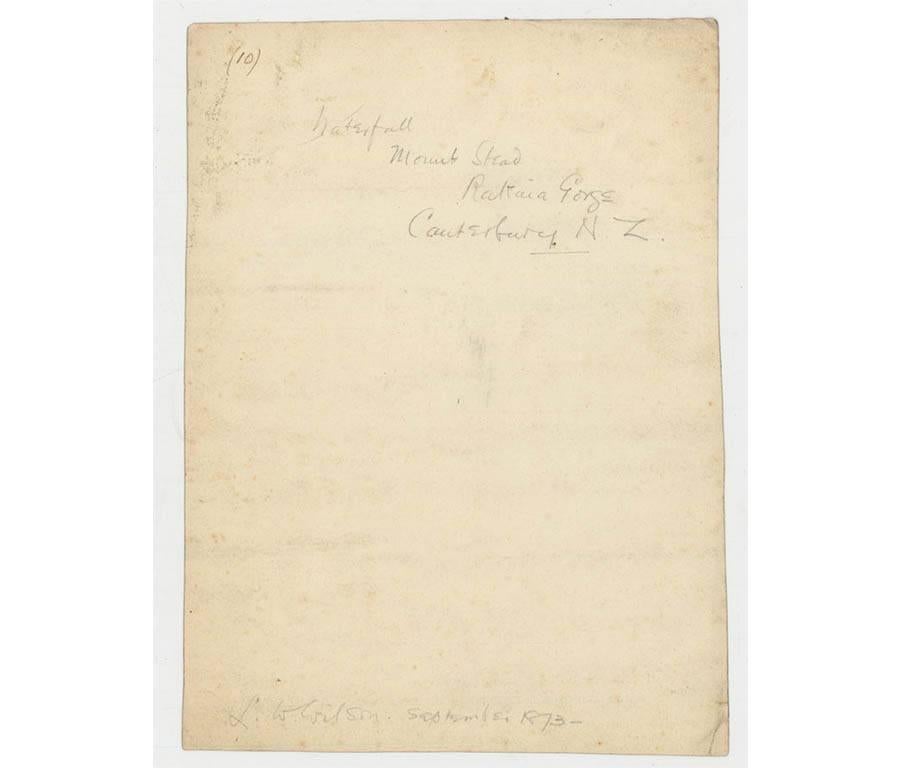 (10)
Waterfall
Mount Stead
Rakaia Gorge
Canterbury N Z.
L. W. Wilson. September 1873 -